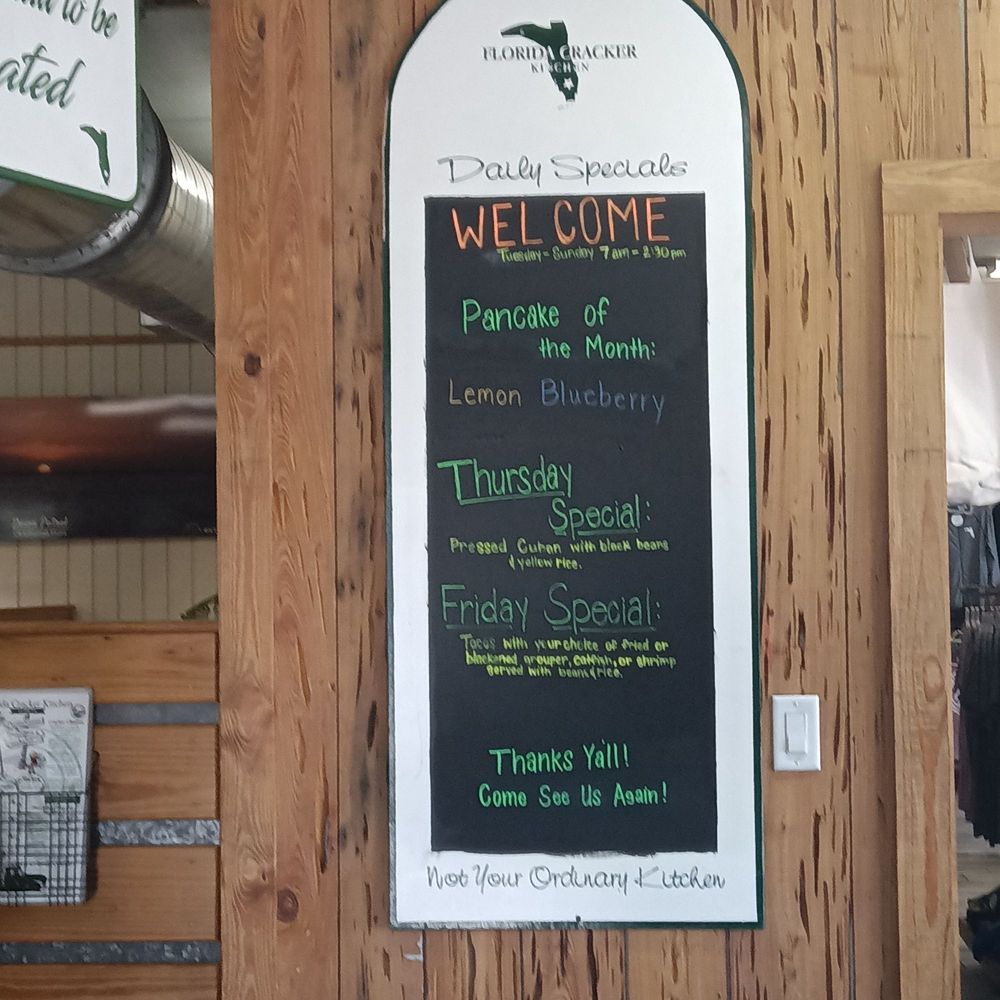 to be
ated
FLORIDA CRACKER
KITCHEN
Daily Specials
WELCOME
Tuesday - Sunday 7am - 2:30pm
Pancake of
the Month:
Lemon Blueberry
Thursday
Special:
Pressed Cuban with black beans
& yellow rice.
Friday Special:
Tacos with your choice of fried or
blackened grouper, catfish, or shrimp
served with beans & rice.
Thanks Ya'll!
Come See Us Again!
Not Your Ordinary Kitchen
Cracker Kitchen